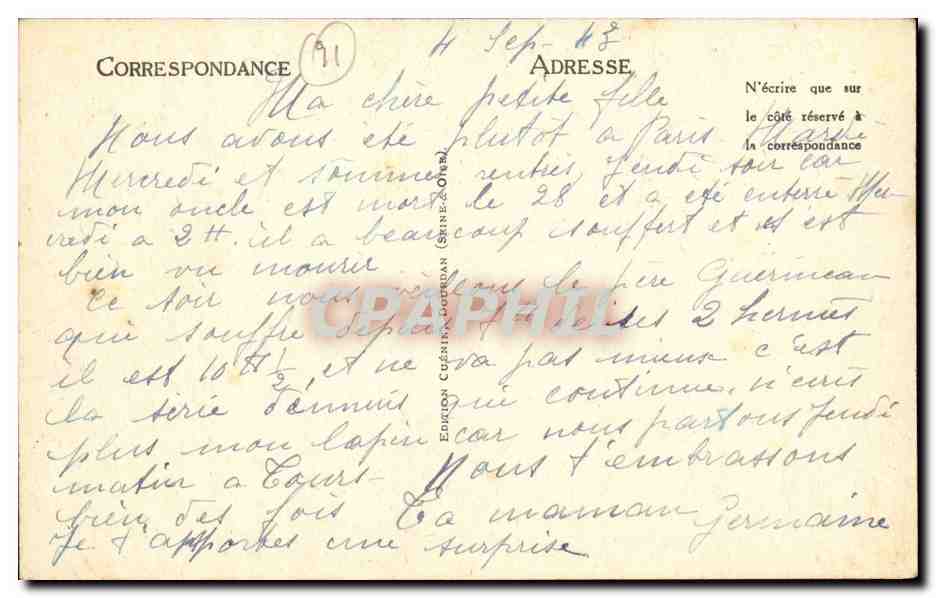 CORRESPONDANCE
91
4 Sep - 43
ADRESSE
N'écrire que sur
le côté réservé à
la correspondance
Ma chère petite fille
Nous avons été plutôt a Paris Mardi
Mercredi et sommes rentrés Jeudi soir car
mon oncle est mort le 28 et a été enterré Mer
credi a 2 H. il a beaucoup souffert et s'est
bien vu mourir
Ce soir nous veillons le père Guérineau
qui souffre depuis ses 2 hernies
il est 10 H 1/2, et ne va pas mieux c'est
la série d'ennuis qui continue. n'écris
plus mon lapin car nous partons Jeudi
matin a Tours - Nous t'embrassons
bien des fois Ta maman Germaine
Je t'apportes une surprise
EDITION CUÉNIN, DOURDAN (SEINE-&-OISE)
CPAPHIL